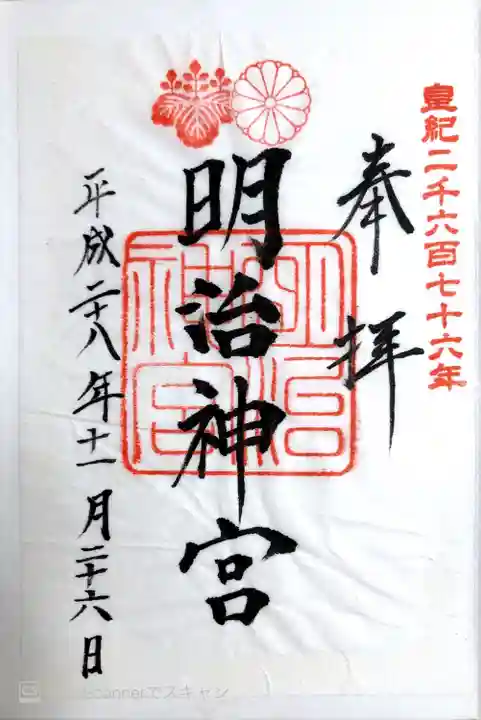 皇紀二千六百七十六年
奉拝
明治神宮
明治神宮
平成二十八年十一月二十六日
scannerでスキャン